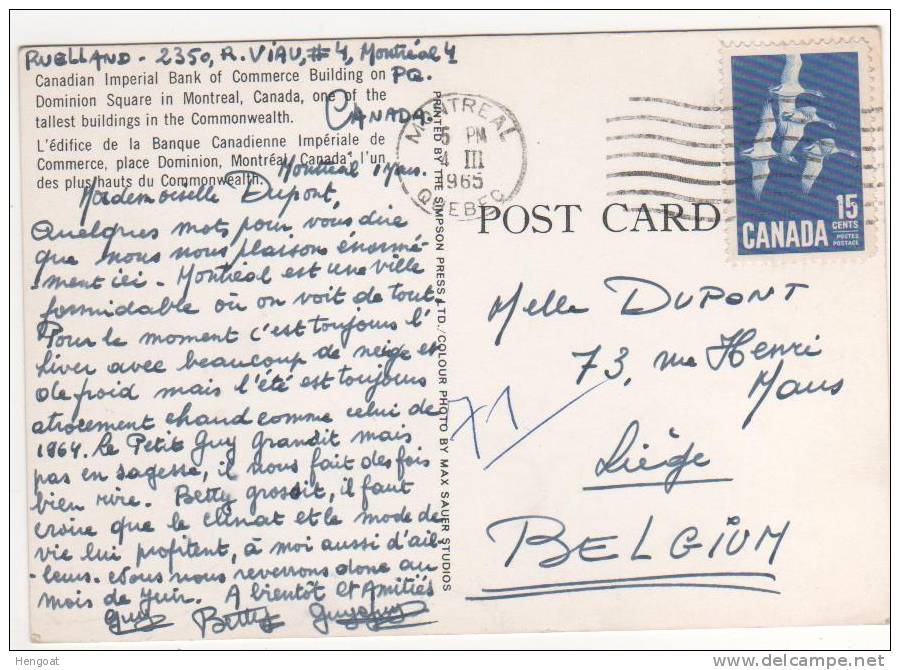 RUELLAND - 2350, R. VIAU, #4, Montréal 4
PQ.
CANADA.
Canadian Imperial Bank of Commerce Building on
Dominion Square in Montreal, Canada, one of the
tallest buildings in the Commonwealth.
L'édifice de la Banque Canadienne Impériale de
Commerce, place Dominion, Montréal, Canada, l'un
des plus hauts du Commonwealth.
Montréal 1 Mars.
Mademoiselle Dupont,
Quelques mots pour vous dire
que nous nous plaisons énormé-
-ment ici - Montréal est une ville
formidable où on voit de tout.
Pour le moment c'est toujours l'
hiver avec beaucoup de neige et
de froid mais l'été est toujours
atrocement chaud comme celui de
1964. Le Petit Guy grandit mais
pas en sagesse, il nous fait des fois
bien rire. Betty grossit, il faut
croire que le climat et le mode de
vie lui profitent, à moi aussi d'ail-
-leurs. Nous nous reverrons donc au
mois de Juin. A bientôt et Amitiés
Guy Betty
PRINTED BY THE SIMPSON PRESS LTD./COLOUR PHOTO BY MAX SAUER STUDIOS
MONTREAL
5 PM
4 III
1965
QUEBEC
POST CARD
15
CENTS
CANADA
POSTES
POSTAGE
Melle DUPONT
73, rue Henri
Maus
71
Liège
BELGIUM
Hengoat
www.delcampe.net